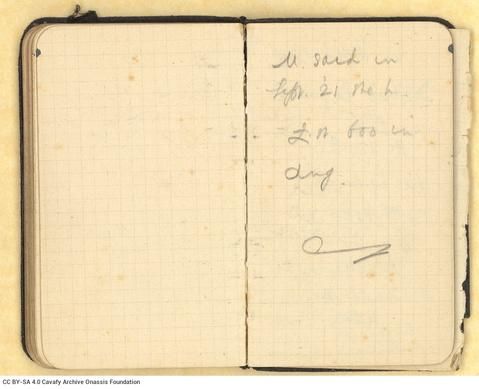 M. said in
Sept. '21 she h.
£ st. 600 in
CC BY-SA 4.0 Cavafy Archive Onassis Foundation